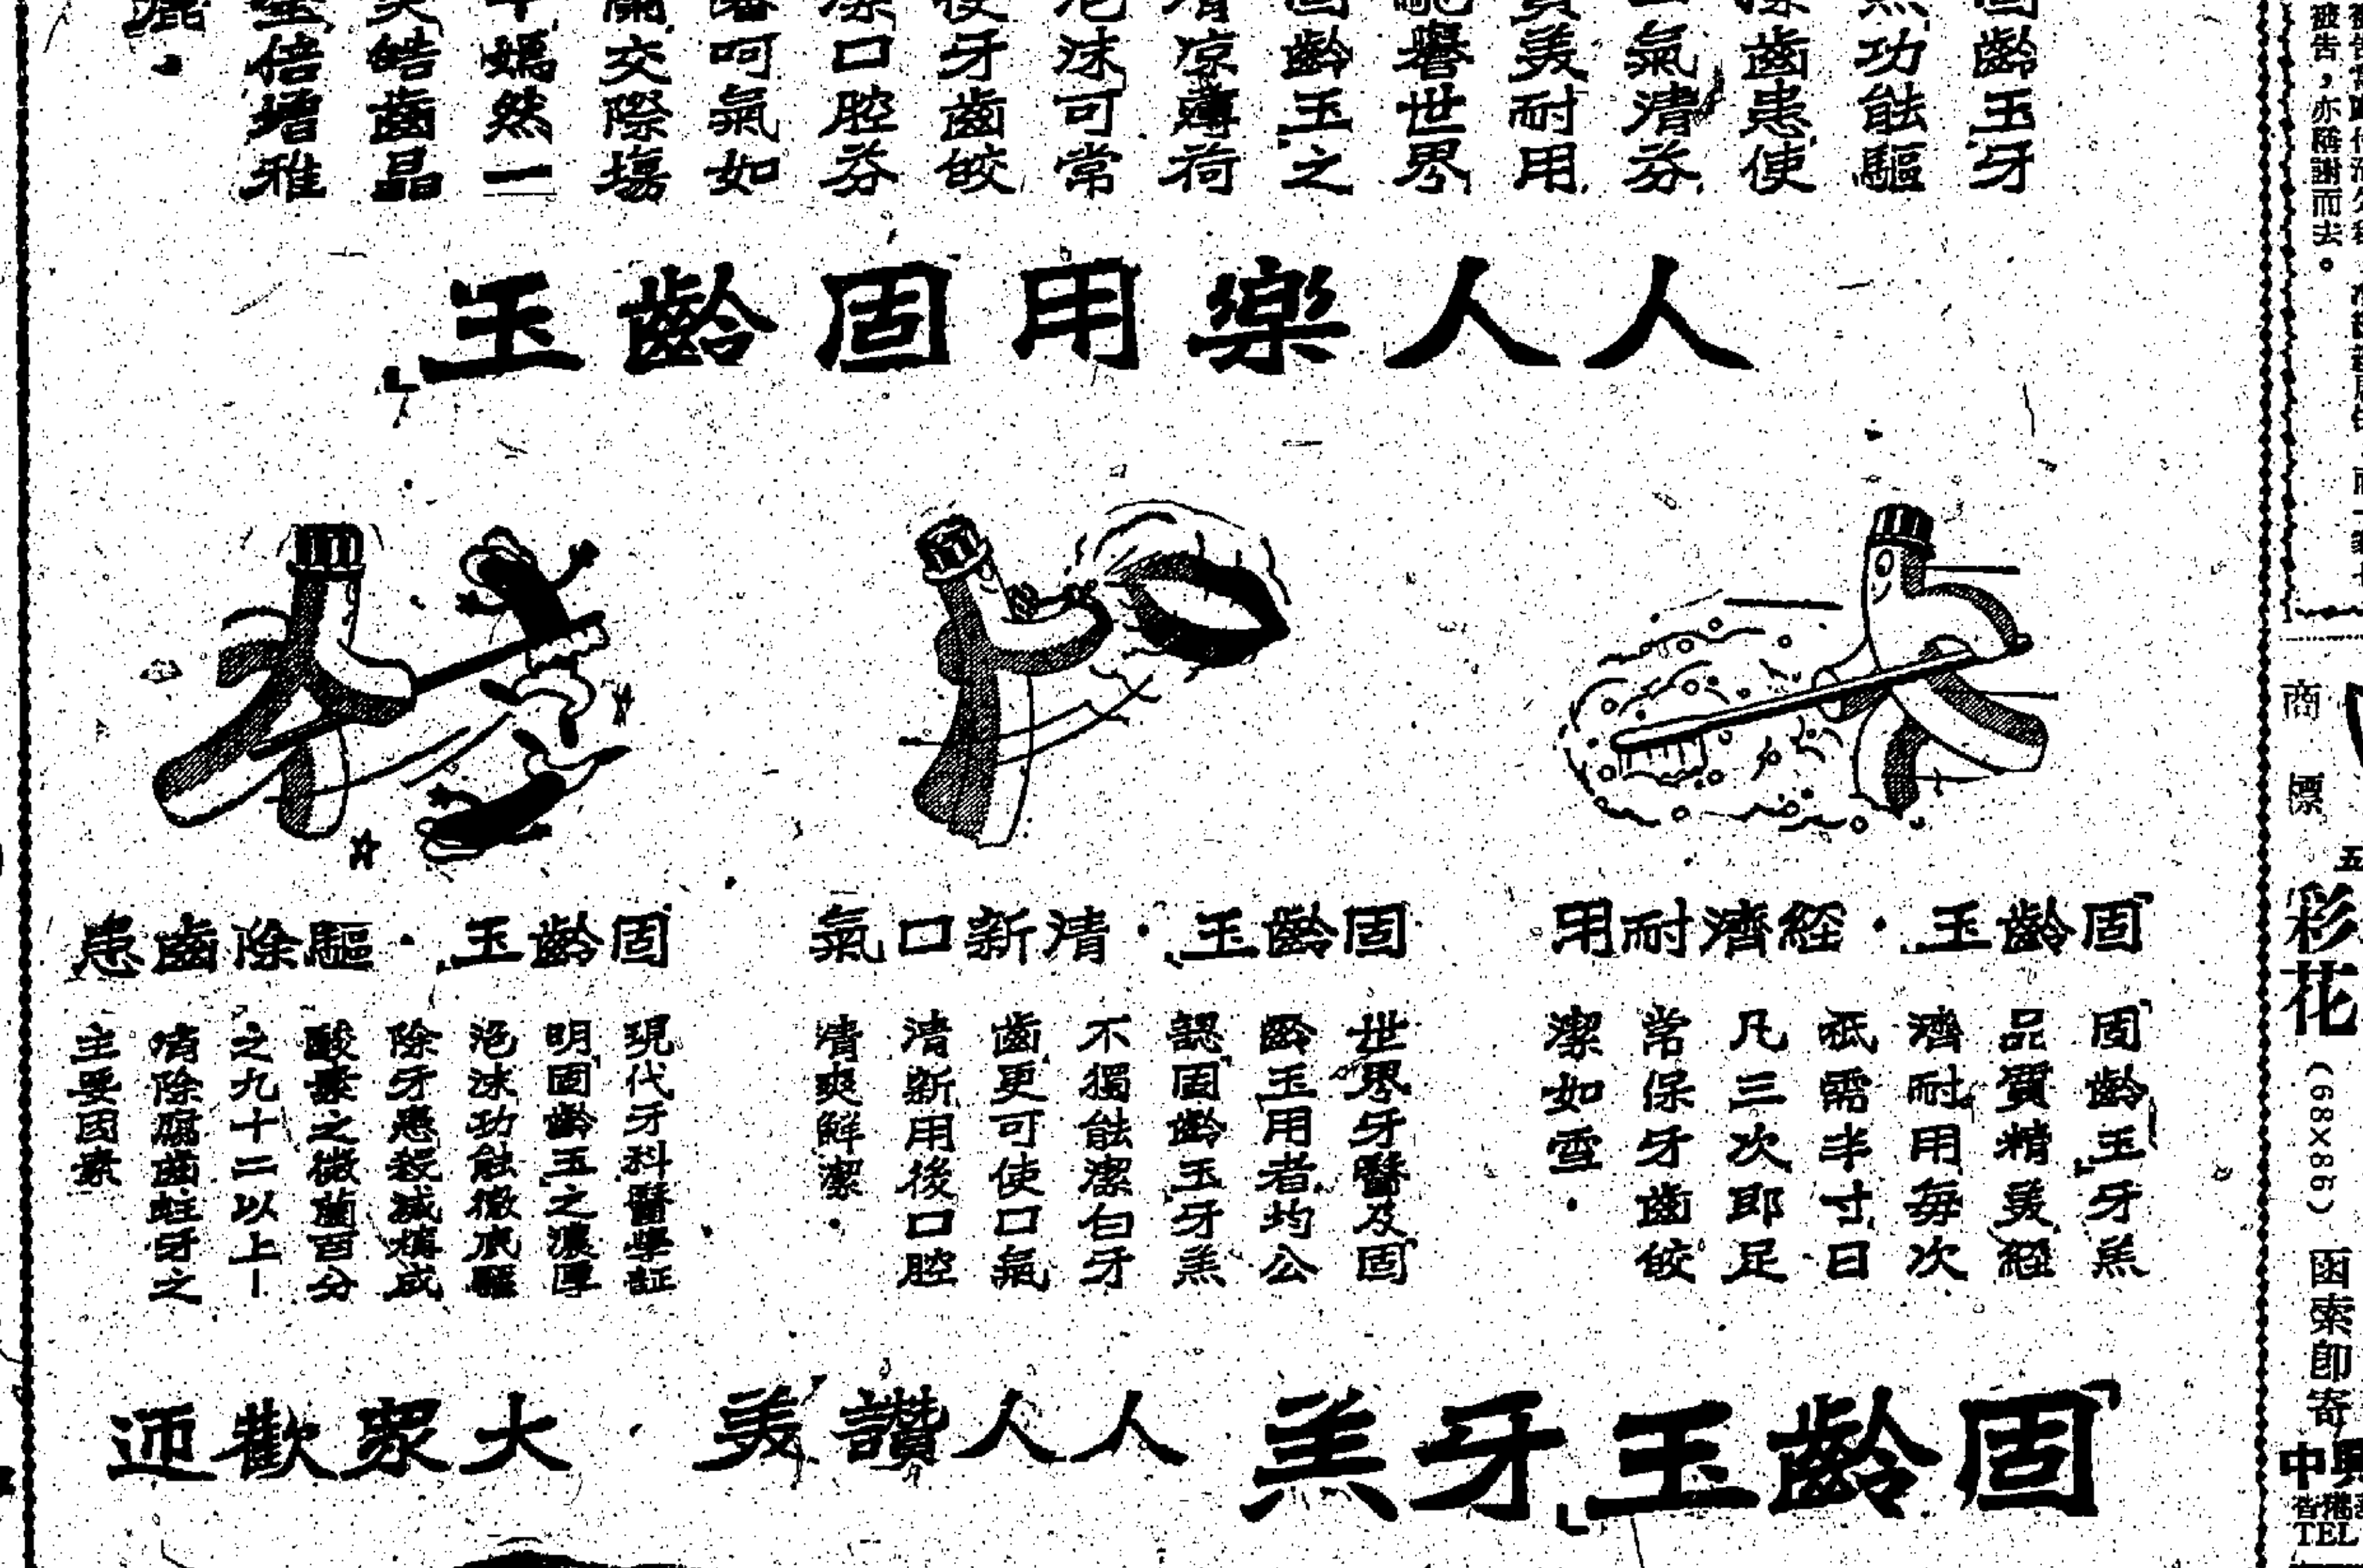 固齡玉牙
功能驅
除齒患使
氣清芬
質美耐用
馳譽世界
固齡玉之
清凉薄荷
泡沫可常
使牙齒皎
潔口腔芬
呵氣如
蘭交際塲
嫣然一
笑皓齒晶
瑩倍增雅
麗・
人人樂用固齡玉」
「固齡玉」・經濟耐用
「固齡玉」牙羔
品質精美經
濟耐用每次
祇需半寸日
凡三次即足
常保牙齒皎
潔如雪・
「固齡玉」・清新口氣
世界牙醫及「固
齡玉」用者均公
認「固齡玉」牙羔
不獨能潔白牙
齒更可使口氣
清新用後口腔
清爽鮮潔・
「固齡玉」・驅除齒患
現代牙科醫學証
明「固齡玉」之濃厚
泡沫功能徹底驅
除牙患殺滅構成
酸素之微菌百分
之九十二以上—
消除腐齒蛀牙之
主要因素
「固齡玉」牙羔
人人讚美・大眾歡迎
被告,亦稱謝而去。
商標
彩花
(68×86)
函索卽寄
中興
TEL